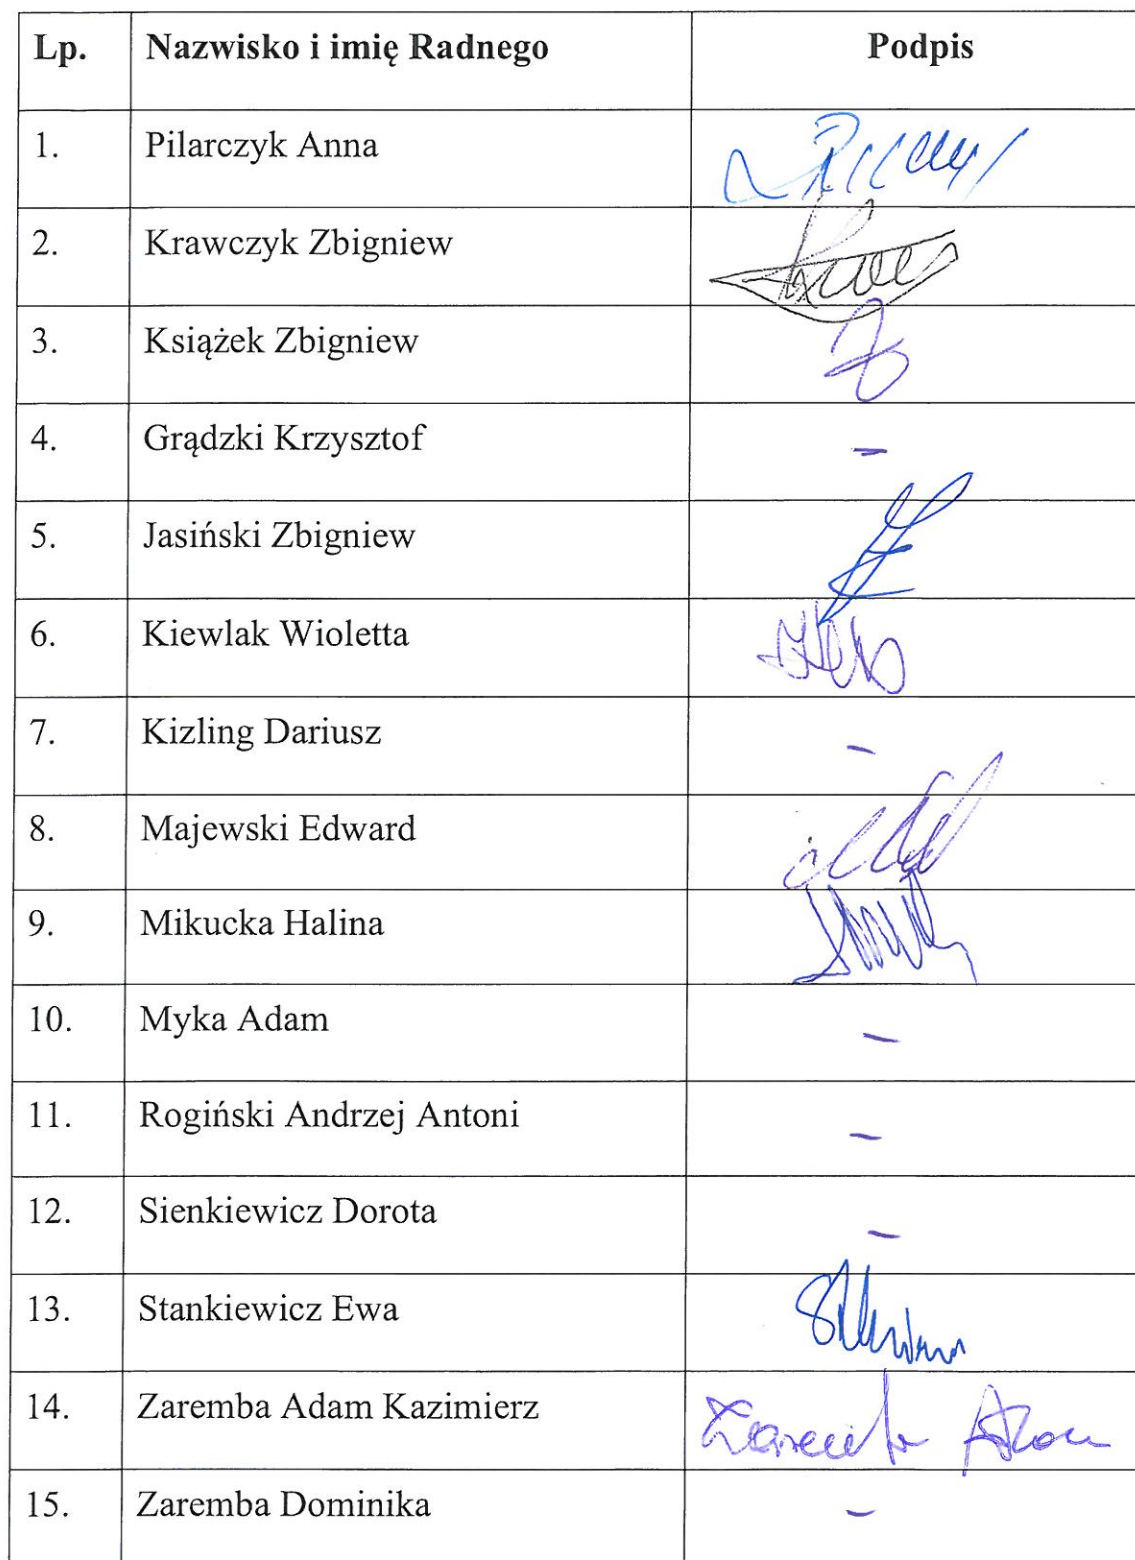 Lp. Nazwisko i imię Radnego Podpis
1. Pilarczyk Anna
2. Krawczyk Zbigniew
3. Książek Zbigniew
4. Grądzki Krzysztof -
5. Jasiński Zbigniew
6. Kiewlak Wioletta
7. Kizling Dariusz -
8. Majewski Edward
9. Mikucka Halina
10. Myka Adam -
11. Rogiński Andrzej Antoni -
12. Sienkiewicz Dorota -
13. Stankiewicz Ewa
14. Zaremba Adam Kazimierz Zaremba Adam
15. Zaremba Dominika -